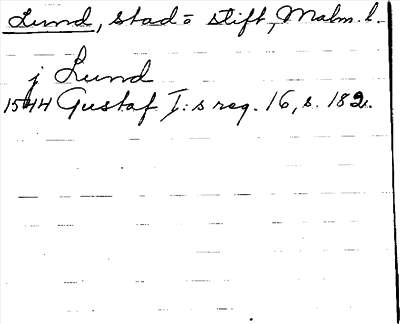 Lund, stad o stift, Malm. l.
j Lund
1544 Gustaf I:s reg. 16, s. 182.